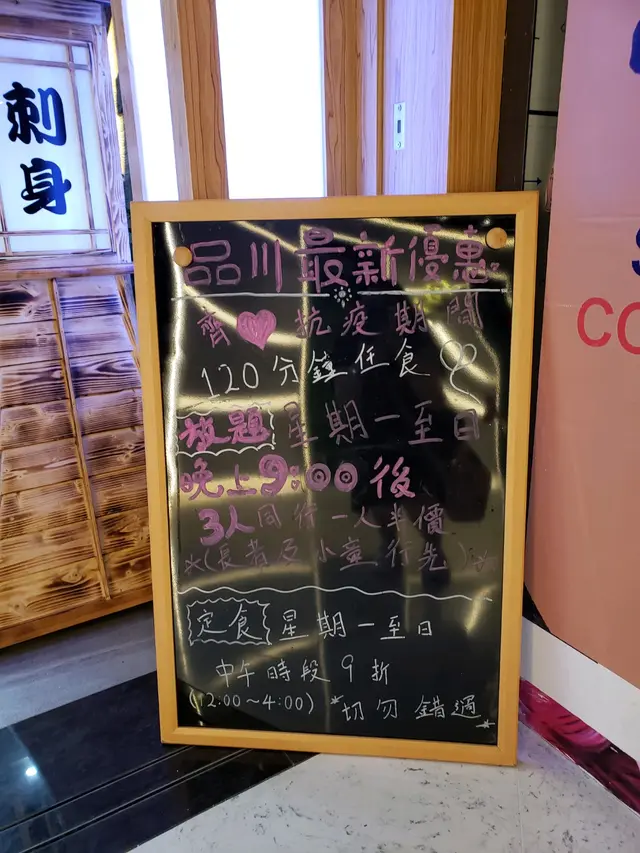 刺身
品川最新優惠
齊♥抗疫期間
120分鐘任食
放題 星期一至日
晚上9:00後
3人同行一人半價
*(長者及小童行先)*
定食 星期一至日
中午時段9折
(12:00~4:00) *切勿錯過*
CO